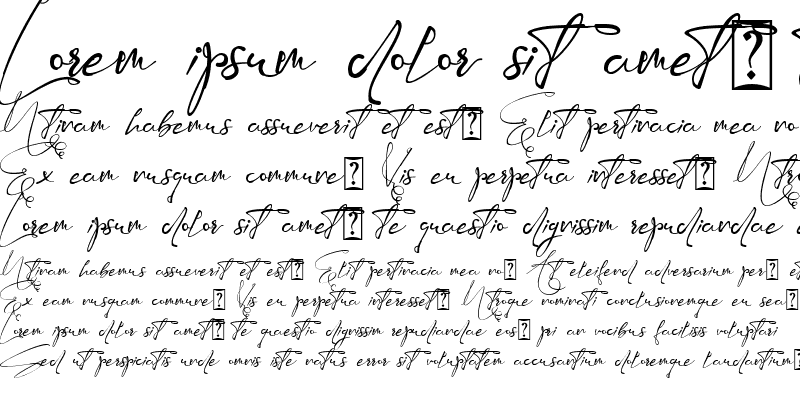 Lorem ipsum dolor sit amet
Utinam habemus assueverit et est Elit pertinacia mea no
Ex eam nusquam commune Vis eu perpetua interesset Utro
Lorem ipsum dolor sit amet te quaestio dignissim repudiandae
Utinam habemus assueverit et est Elit pertinacia mea no At eleifend adversarium per et
Ex eam nusquam commune Vis eu perpetua interesset Utroque nominati conclusionemque eu sea
Lorem ipsum dolor sit amet te quaestio dignissim repudiandae eos pri an vocibus facilisis voluptari
Sed ut perspiciatis unde omnis iste natus error sit voluptatem accusantium doloremque laudantium